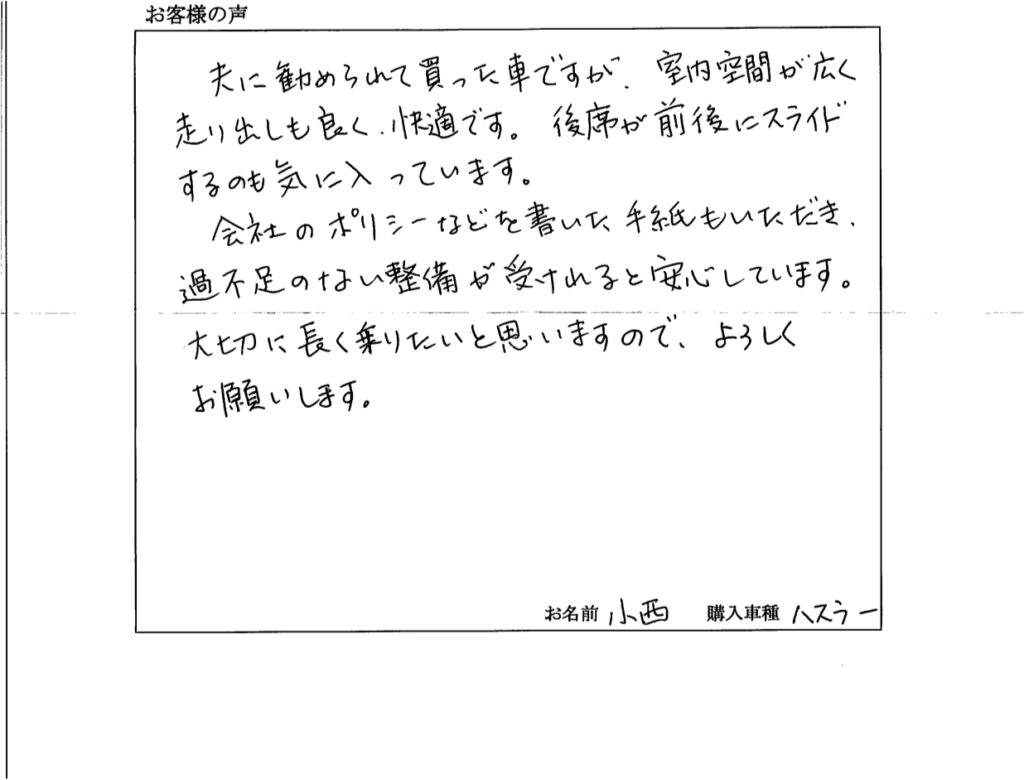 お客様の声
夫に勧められて買った車ですが、室内空間が広く
走り出しも良く、快適です。後席が前後にスライド
するのも気に入っています。
会社のポリシーなどを書いた手紙もいただき、
過不足のない整備が受けれると安心しています。
大切に長く乗りたいと思いますので、よろしく
お願いします。
お名前 小西 購入車種 ハスラー